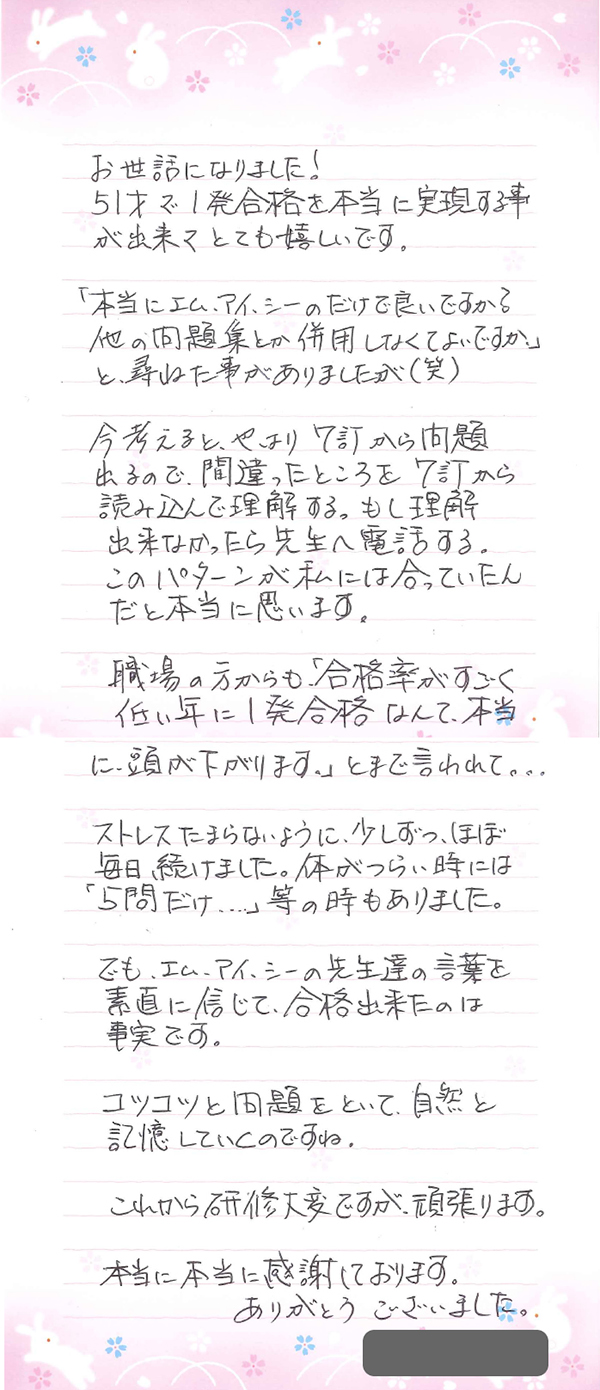 お世話になりました!
51才で1発合格を本当に実現する事
が出来てとても嬉しいです。
「本当にエム、アイ、シーのだけで良いですか?
他の問題集とか併用しなくてよいですか?」
と、尋ねた事がありましたが(笑)
今考えると、やはり7訂から問題
出るので、間違ったところを7訂から
読み込んで理解する。もし理解
出来なかったら先生へ電話する。
このパターンが私には合っていたん
だと本当に思います。
職場の方からも、「合格率がすごく
低い年に1発合格なんて、本当
に、頭が下がります。」とまで言われて...
ストレスたまらないように、少しずつ、ほぼ
毎日、続けました。体がつらい時には
「5問だけ....」等の時もありました。
でも、エム、アイ、シーの先生達の言葉を
素直に信じて、合格出来たのは
事実です。
コツコツと問題をといて、自然と
記憶していくのですね。
これから研修大変ですが、頑張ります。
本当に本当に感謝しております。
ありがとうございました。